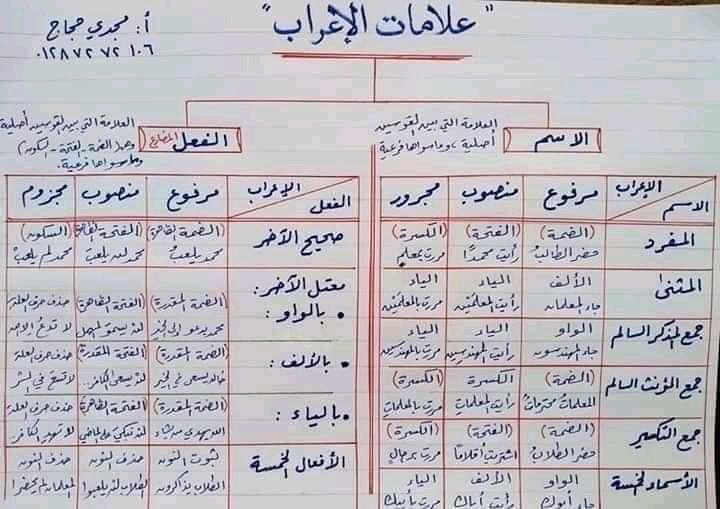 "علامات الإعراب"
أ: مجدي حجاج
٠١٢٨٧٢٧٢١٠٦
الاسم
العلامة التي بين القوسين
أصلية، وما سواها فرعية
الإعراب مرفوع منصوب مجرور
الاسم
المفرد (الضمة) (الفتحة) (الكسرة)
حضر الطالبُ رأيت محمدًا مررت بمعلمٍ
المثنى الألف الياء الياء
جاء المعلمان رأيت المعلمَيْن مررت بالمعلمَيْن
جمع المذكر السالم الواو الياء الياء
جاء المهندسون رأيت المهندسين مررت بالمهندسين
جمع المؤنث السالم (الضمة) الكسرة (الكسرة)
المعلماتُ محترماتٌ رأيت المعلماتِ مررت بالمعلماتِ
جمع التكسير (الضمة) (الفتحة) (الكسرة)
حضر الطلابُ اشتريت أقلامًا مررت برجالٍ
الأسماء الخمسة الواو الألف الياء
جاء أبوك رأيت أباك مررت بأبيك
الفعل المضارع
العلامة التي بين القوسين أصلية
وهي (الضمة - الفتحة - السكون)
وما سواها فرعية.
الإعراب مرفوع منصوب مجزوم
الفعل
صحيح الآخر (الضمة الظاهرة) (الفتحة الظاهرة) (السكون)
محمد يلعبُ محمد لن يلعبَ محمد لم يلعبْ
معتل الآخر:
• بالواو: (الضمة المقدرة) (الفتحة الظاهرة) حذف حرف العلة
محمد يدعو إلى الخير لن يسموَ لا تدعُ إلا
• بالألف: (الضمة المقدرة) (الفتحة المقدرة) حذف حرف العلة
خالد يسعى في الخير لن يسعى الكافر.. لا تسعَ في الشر
• بالياء: (الضمة المقدرة) (الفتحة الظاهرة) حذف حرف العلة
الله يهدي من يشاء لن تبكيَ على الماضي
الأفعال الخمسة ثبوت النون حذف النون حذف النون
الطلاب يذاكرون الطلاب لن يلعبوا المعلمان لم يحضرا